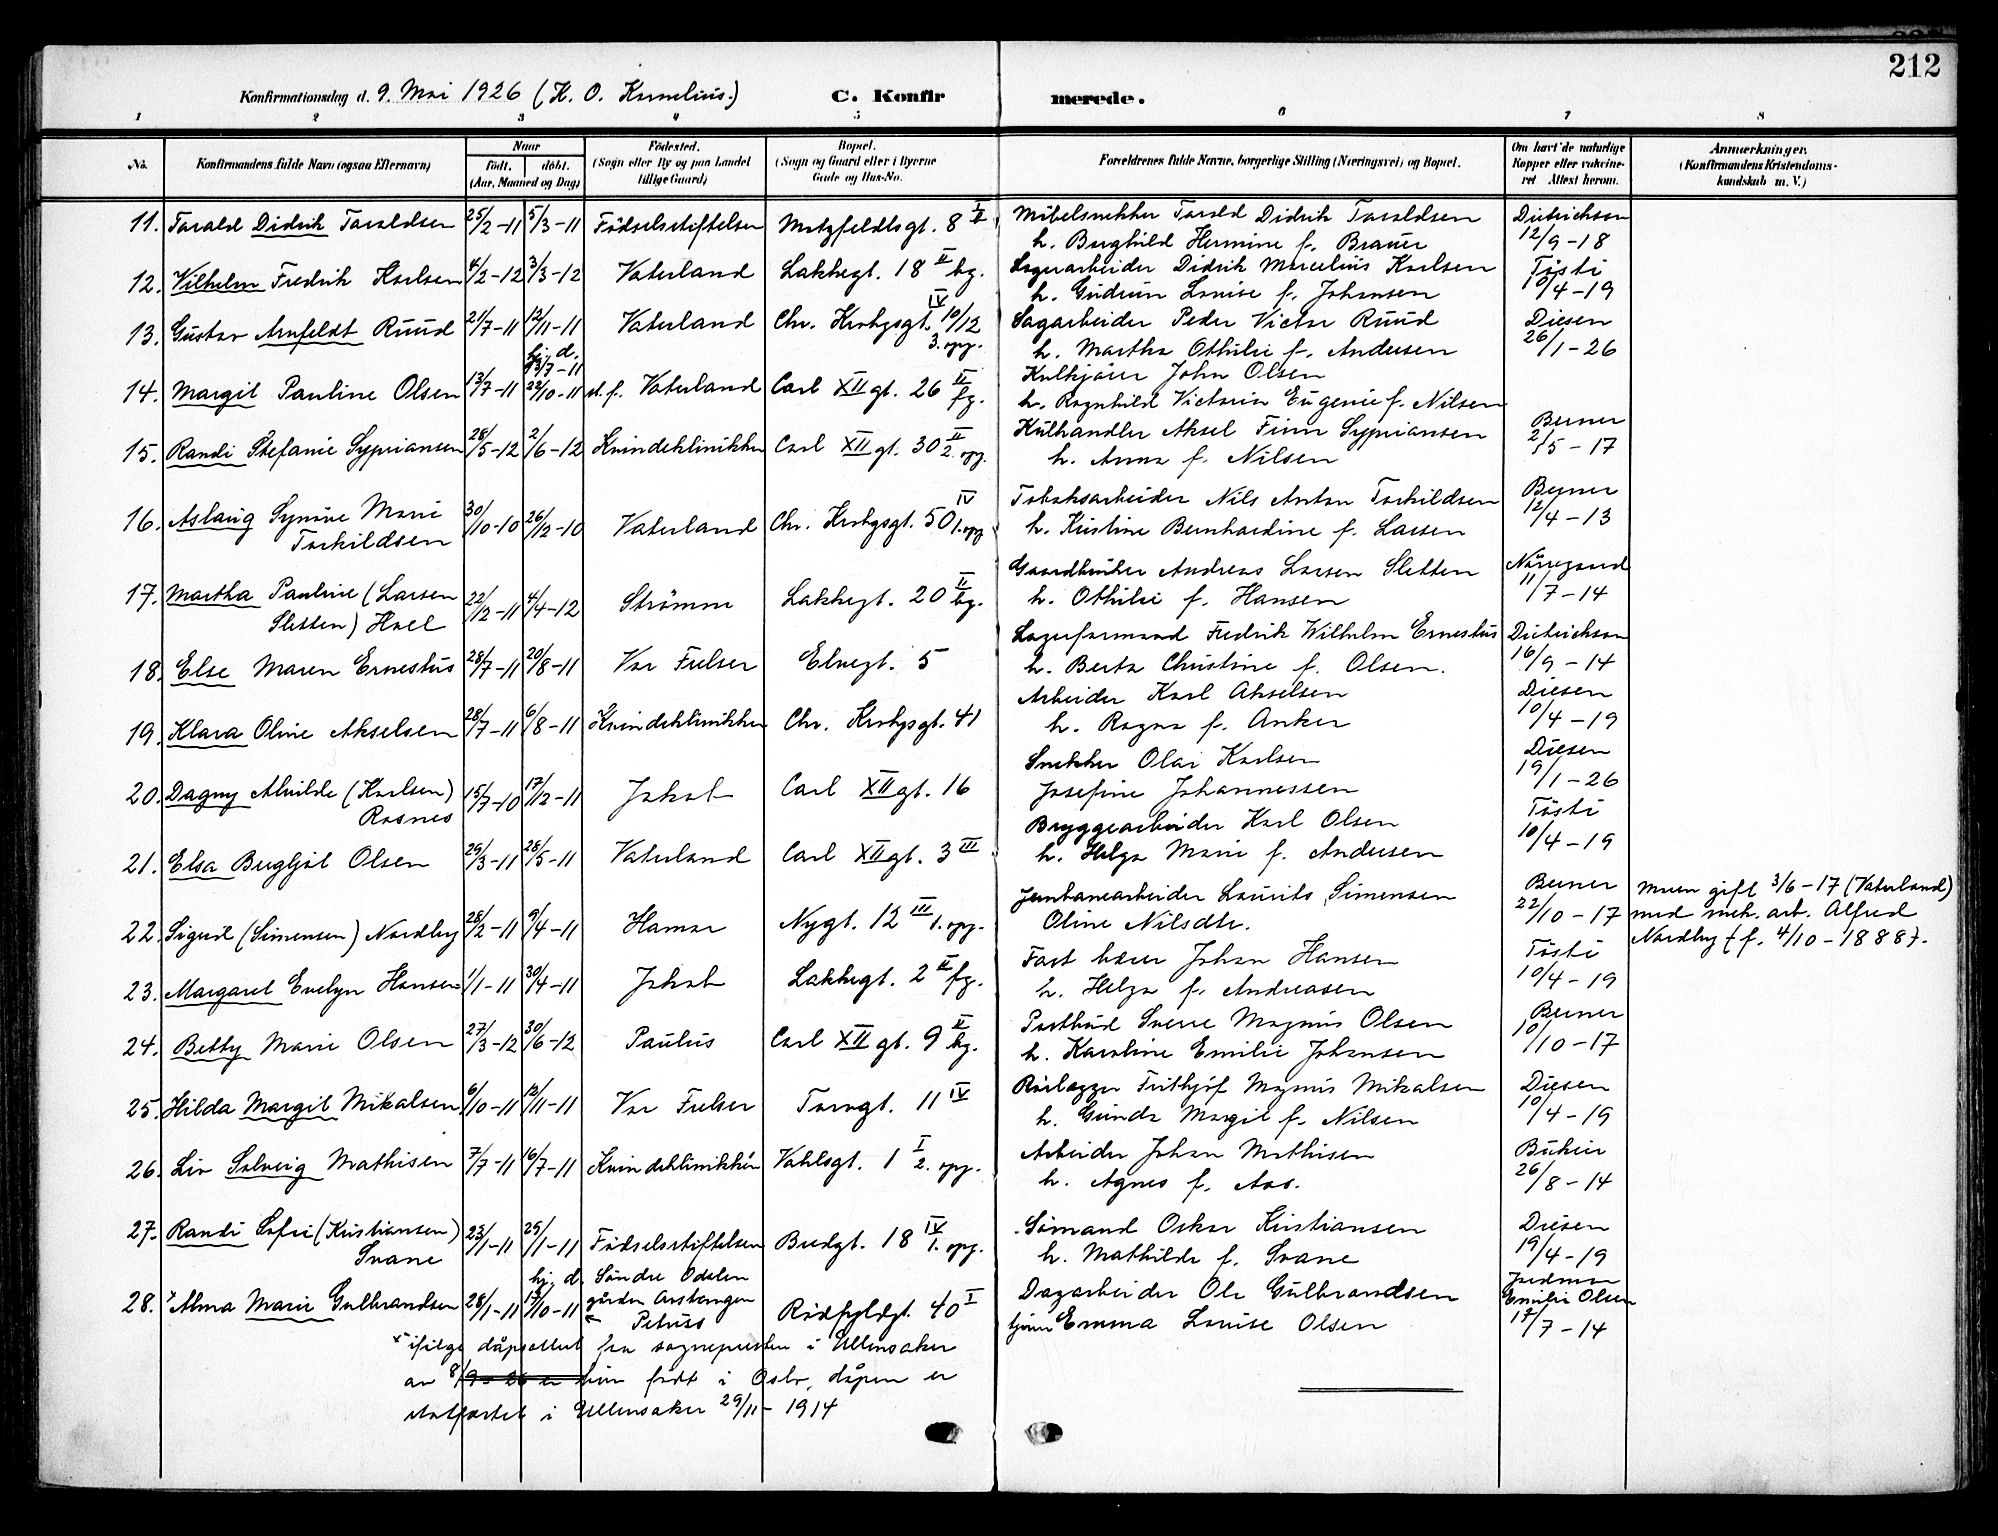 212
Konfirmationsdag d. 9. Mai 1926 (H. O. Kornelius.)
C. Konfirmerede.
1 2 3 4 5 6 7 8
No.
Konfirmandens fulde Navn (ogsaa Efternavn)
Naar
födt. döbt.
(Aar, Maaned og Dag)
Födested.
(Sogn eller By og paa Landet
tillige Gaard)
Bopæl.
(Sogn og Gaard eller i Byerne
Gade og Hus-No.
Forældrenes fulde Navne, borgerlige Stilling (Næringsvei) og Bopæl.
Om havt de naturlige
Kopper eller vakcine-
ret Attest herom.
Anmærkninger.
(Konfirmandens Kristendoms-
kundskab m. V.)
11. Torald Didrik Toraldsen 25/2-11 5/3-11 Födselsstiftelsen Motzfeldtsgt. 8 II
Möbelsnekker Torald Didrik Toraldsen
h. Borghild Hermine f. Brauer
Dietrichson
12/9-18
12. Vilhelm Fredrik Karlsen 4/2-12 3/3-12 Vaterland Lakkegt. 18 II bg.
Lagerarbeider Didrik Marcelius Karlsen
h. Gudrun Louise f. Johansen
Tösti
10/4-19
13. Gustav Arnfeldt Ruud 21/7-11 12/11-11 Vaterland Chr. Krohgsgt. 10/12 IV
3. opg.
Sagarbeider Peder Victor Ruud
h. Martha Othilie f. Andersen
Diesen
26/1-26
14. Margit Pauline Olsen 13/7-11 hj. d.
23/7-11
22/10-11 st. f. Vaterland Carl XII gt. 26 II fg.
Kulkjörer John Olsen
h. Ragnhild Victoria Eugenie f. Nilsen
15. Randi Stefanie Sypriansen 28/5-12 2/6-12 Kvindeklinikken Carl XII gt. 30 II 2. opg.
Kulhandler Aksel Finn Sypriansen
h. Anna f. Nilsen
Berner
2/5-17
16. Aslaug Synöve Marie
Torkildsen 30/10-10 26/12-10 Vaterland Chr. Krohgsgt. 50 IV 1. opg.
Tobaksarbeider Nils Anton Torkildsen
h. Kristine Bernhardine f. Larsen
Berner
12/4-13
17. Martha Pauline (Larsen
Sletten) Hoel 22/12-11 4/4-12 Strömm Lakkegt. 20 II bg.
Gaardbruker Andreas Larsen Sletten
h. Othilie f. Hansen
Nörregaard
11/7-14
18. Else Maren Ernestus 28/7-11 20/8-11 Vor Frelser Elvegt. 5
Lagerformand Fredrik Wilhelm Ernestus
h. Berta Christine f. Olsen.
Dietrichson
16/9-14
19. Klara Oline Akselsen 28/7-11 6/8-11 Kvindeklinikken Chr. Krohgsgt. 41
Arbeider Karl Akselsen
h. Ragna f. Anker
Diesen
10/4-19
20. Dagny Alvilde (Karlsen)
Rosnes 15/7-10 17/12-11 Jakob Carl XII gt. 16
Snekker Olai Karlsen
Josefine Johannessen
Diesen
19/1-26
21. Elsa Bergljot Olsen 29/3-11 28/5-11 Vaterland Carl XII gt. 3 III
Bryggearbeider Karl Olsen
h. Helga Marie f. Andersen
Tösti
10/4-19
22. Sigurd (Simensen) Nordby 28/2-11 9/4-11 Hamar Nygt. 12 III 1. opg.
Jernbanearbeider Laurits Simensen
Oline Nilsdtr.
Berner
22/10-17
Moren gift 3/6-17 (Vaterland)
med mek. arb. Alfred
Nordby f. 4/10-1888.
23. Margaret Evelyn Hansen 1/1-11 30/4-11 Jakob Lakkegt. 2 II fg.
Fast bærer Johan Hansen
h. Helga f. Andreasen
Tösti
10/4-19
24. Betty Marie Olsen 27/3-12 30/6-12 Paulus Carl XII gt. 9 II bg.
Postbud Sverre Magnus Olsen
h. Karoline Emilie Johansen
Berner
10/10-17
25. Hilda Margit Mikalsen 6/10-11 12/11-11 Vor Frelser Torvgt. 11 IV
Rörlægger Frithjof Magnus Mikalsen
h. Gunda Margit f. Nilsen
Diesen
10/4-19
26. Liv Solveig Mathisen 7/7-11 16/7-11 Kvindeklinikken Vahlsgt. 1 I 2. opg.
Arbeider Johan Mathisen
h. Agnes f. Aas.
26/8-14
27. Randi Sofie (Kristiansen)
Svane 23/1-11 29/1-11 Födselsstiftelsen Bredgt. 18 IV 1. opg.
Sömand Oskar Kristiansen
h. Mathilde f. Svane
Diesen
19/4-19
28. Alma Marie Gulbrandsen 28/1-11 hj. d.
15/10-11 Söndre Odalen
gården
Petrus Rödfyldgt. 40 I
Dagarbeider Ole Gulbrandsen
Emma Louise Olsen
Jordmor
Emilie Olsen
17/7-14
ifölge dåpsattest fra sognepresten i Ullensaker
av 8/9-26 er hun födt i Oslo, dåpen er
statfæstet i Ullensaker 29/11-1914